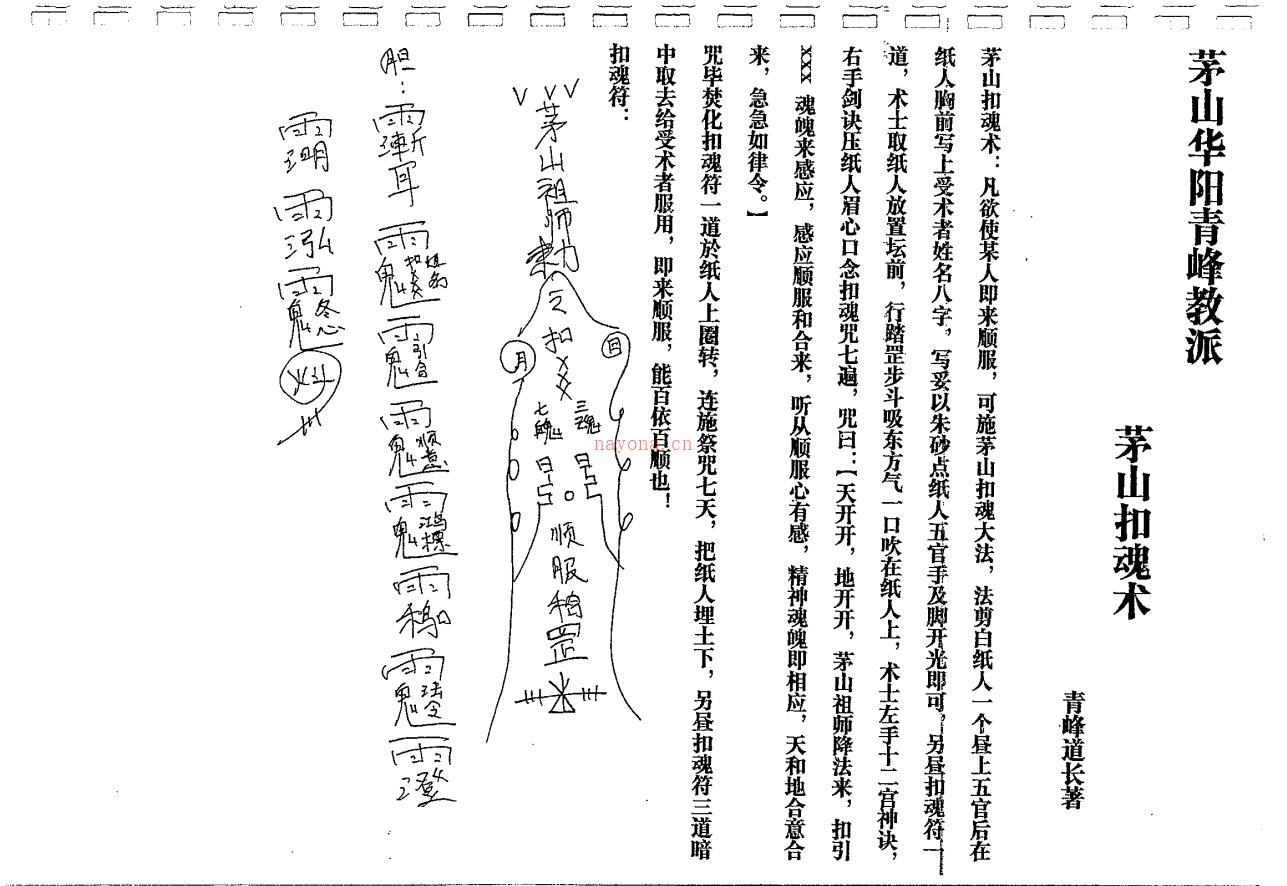 茅山华阳青峰教派
茅山扣魂术
青峰道长著
茅山扣魂术：凡欲使某人即来顺服，可施茅山扣魂大法，法剪白纸人一个昼上五官后在
纸人胸前写上受术者姓名八字，写妥以朱砂点纸人五官手及脚开光即可，另昼扣魂符一
道，术士取纸人放置坛前，行踏罡步斗吸东方气一口吹在纸人上，术士左手十二宫神诀，
右手剑诀压纸人眉心口念扣魂咒七遍，咒曰：【天开开，地开开，茅山祖师降法来，扣引
XXX 魂魄来感应，感应顺服和合来，听从顺服心有感，精神魂魄即相应，天和地合意合
来，急急如律令。】
咒毕焚化扣魂符一道於纸人上圈转，连施祭咒七天，把纸人埋土下，另昼扣魂符三道暗
中取去给受术者服用，即来顺服，能百依百顺也！
扣魂符：
茅山祖师敕
令扣XX
日
月
三魂
七魄
顺服
罡
胆：
nayona.cn